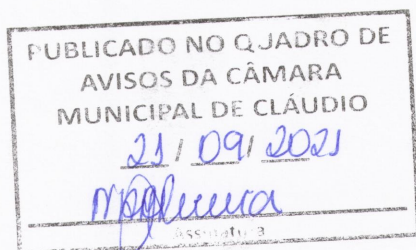 PUBLICADO NO QUADRO DE
AVISOS DA CÂMARA
MUNICIPAL DE CLÁUDIO
21 / 09 / 2021
Assinatura